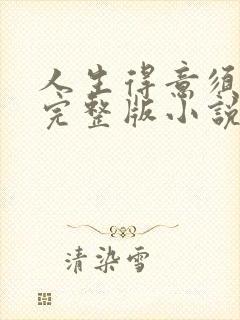 人生得意須
完整版小説
清染雪